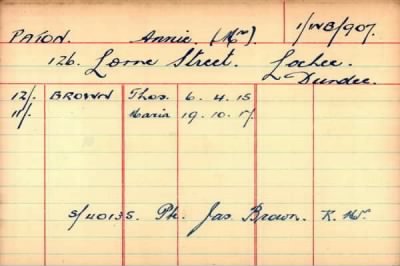 PATON. Annie. (Mrs). 1/WB/907.
126. Lorne Street. Lochee.
Dundee.
12/. BROWN Thos. 6. 4. 15
11/. Maria 19. 10. 17
S/40135. Pte. Jas. Brown. R. Hrs.